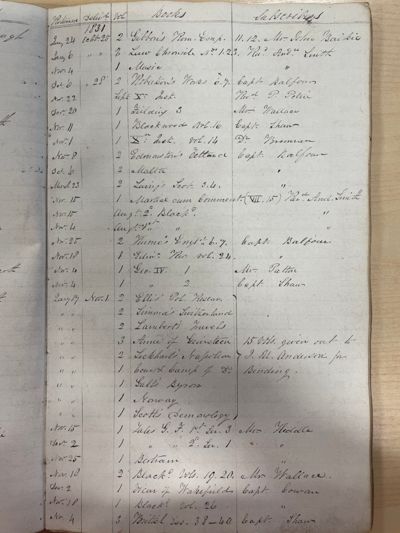 Returned Deliv'd Vol Books Subscribers
1831
Jany 24 Octr 25 2 Gibbon's Rom. Emp. 11. 12. Mr John Baikie
Jany 6 " " 2 Law Chronicle No 1.23. Smith
Nov. 4 1 Music "
Oct. 6 " 28 2 Robertson's Works 6.7. Capt Balfour
Nov. 22 Sept Inst. Thos P.
Dec. 20 1 Fielding 3 Mr Wallace
Nov. 11 1 Blackwood Vol. 16 Capt Shaw
Nov. 1 1 Inst. Vol. 14 Dr
Nov. 8 2 Edmonston's Zetland Capt Balfour
Oct. 6 2 Malta "
Mar. 23 2 Laing's Scot. 3.4. "
Nov. 15 1 Martial cum Comment (VII. 15) Smith
Nov. 15 Augt 2d Blackd "
Nov. 4 Augt 1st " "
Nov. 25 2 Hume's Engd 6.7. Capt Balfour
Nov. 18 1 Edinr Vol. 24. "
Nov. 4 1 Geo. IV. 1 Mr
Nov. 4 1 " 2 Capt Shaw
Jany 19 Nov. 1 2 Ellis' Pol.
" " 2 Simond's Switzerland
" " 2 Lambert's Travels
" " 3 Anne of Geierstein 15 Vols. given out to
" " 2 Lockhart's Napoleon J. M. Anderson for
" " 1 Court & Camp of Do Binding.
" " 1 Galt's Byron
" " 1 Norway
" " 1 Scott's Demonology
Nov. 15 1 Tales G. F. 1st Ser. 3 Mr Heddle
Dec. 2 1 " " 2d Ser. 1 "
Nov. 25 1 Bertram "
Nov. 18 2 Blackd Vols. 19. 20. Mr Wallace
Dec. 2 1 Vicar of Wakefield Capt Cowan
Nov. 18 1 Blackd Vol. 26 "
Nov. 4 3 British 38-40. Capt Shaw